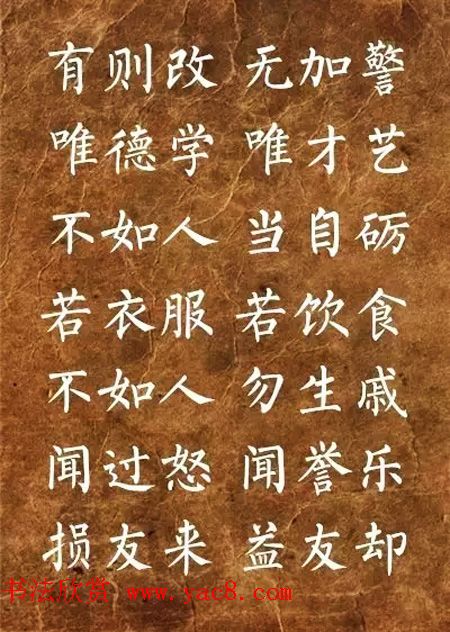 有则改 无加警
唯德学 唯才艺
不如人 当自砺
若衣服 若饮食
不如人 勿生戚
闻过怒 闻誉乐
损友来 益友却
书法欣赏 www.yac8.com